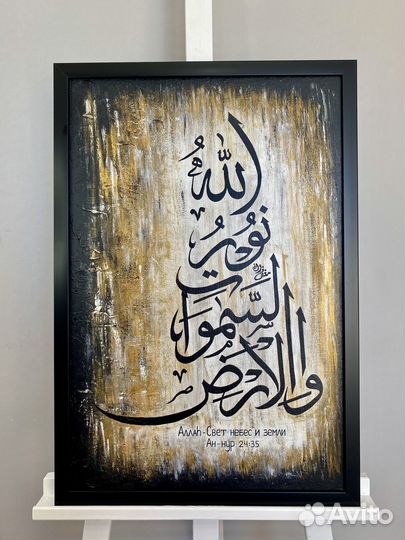 الله
نور
السموات
والأرض
Аллаh-Свет небес и земли
Ан-нур 24:35
Avito